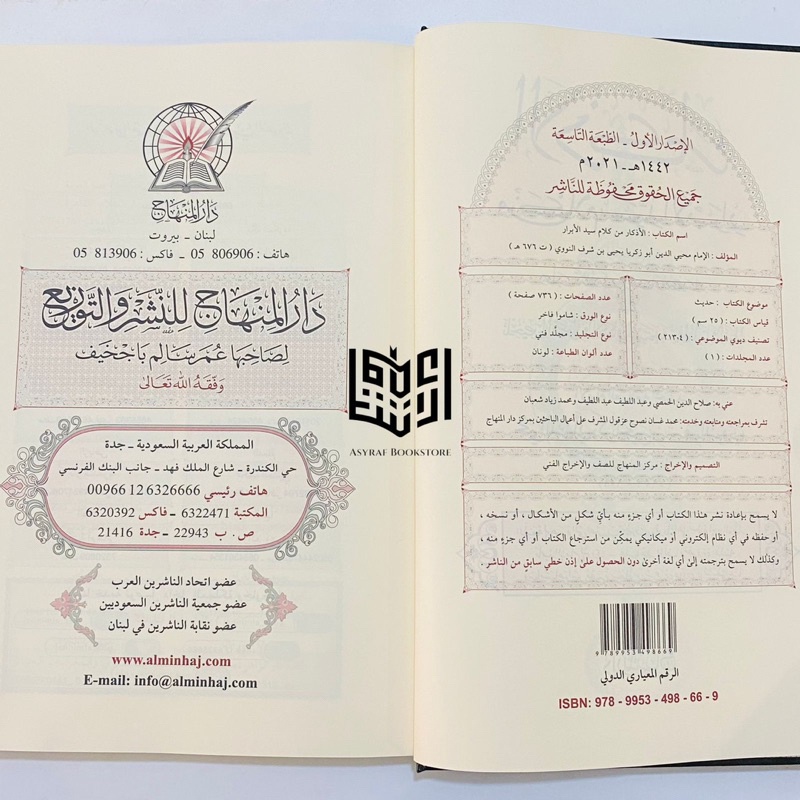 الإصدار الأول - الطبعة التاسعة
١٤٤٢هـ - ٢٠٢١م
جميع الحقوق محفوظة للناشر
اسم الكتاب : الأذكار من كلام سيد الأبرار
المؤلف : الإمام محيي الدين أبو زكريا يحيى بن شرف النووي ( ت ٦٧٦ هـ )
موضوع الكتاب : حديث
قياس الكتاب : ( ٢٥ سم )
تصنيف ديوي الموضوعي : ( ٢١٣،٤ )
عدد المجلدات : ( ١ )
عدد الصفحات : ( ٧٣٦ صفحة )
نوع الورق : شاموا فاخر
نوع التجليد : مجلّد فني
عدد ألوان الطباعة : لونان
عني به : صلاح الدين الحمصي وعبد اللطيف عبد اللطيف ومحمد زياد شعبان
تشرف بمراجعته ومتابعته وخدمته: محمد غسان نصوح عزقول المشرف على أعمال الباحثين بمركز دار المنهاج
التصميم والإخراج : مركز المنهاج للصف والإخراج الفني
لا يسمح بإعادة نشر هذا الكتاب أو أي جزء منه بأيّ شكلٍ من الأشكال ، أو نسخه ،
أو حفظه في أي نظام إلكتروني أو ميكانيكي يمكّن من استرجاع الكتاب أو أي جزء منه ،
وكذلك لا يسمح بترجمته إلى أي لغة أخرى دون الحصول على إذن خطي سابق من الناشر .
9 789953 498669
الرقم المعياري الدولي
ISBN: 978 - 9953 - 498 - 66 - 9
دار المنهاج
لبنان - بيروت
هاتف : 806906 05 - فاكس : 813906 05
دار المنهاج للنشر والتوزيع
لصاحبها عمر سالم باجخيف
وفقه الله تعالى
المملكة العربية السعودية - جدة
حي الكندرة - شارع الملك فهد - جانب البنك الفرنسي
هاتف رئيسي 6326666 12 00966
المكتبة 6322471 - فاكس 6320392
ص . ب 22943 - جدة 21416
عضو اتحاد الناشرين العرب
عضو جمعية الناشرين السعوديين
عضو نقابة الناشرين في لبنان
www.alminhaj.com
E-mail: info@alminhaj.com
ASYRAF BOOKSTORE